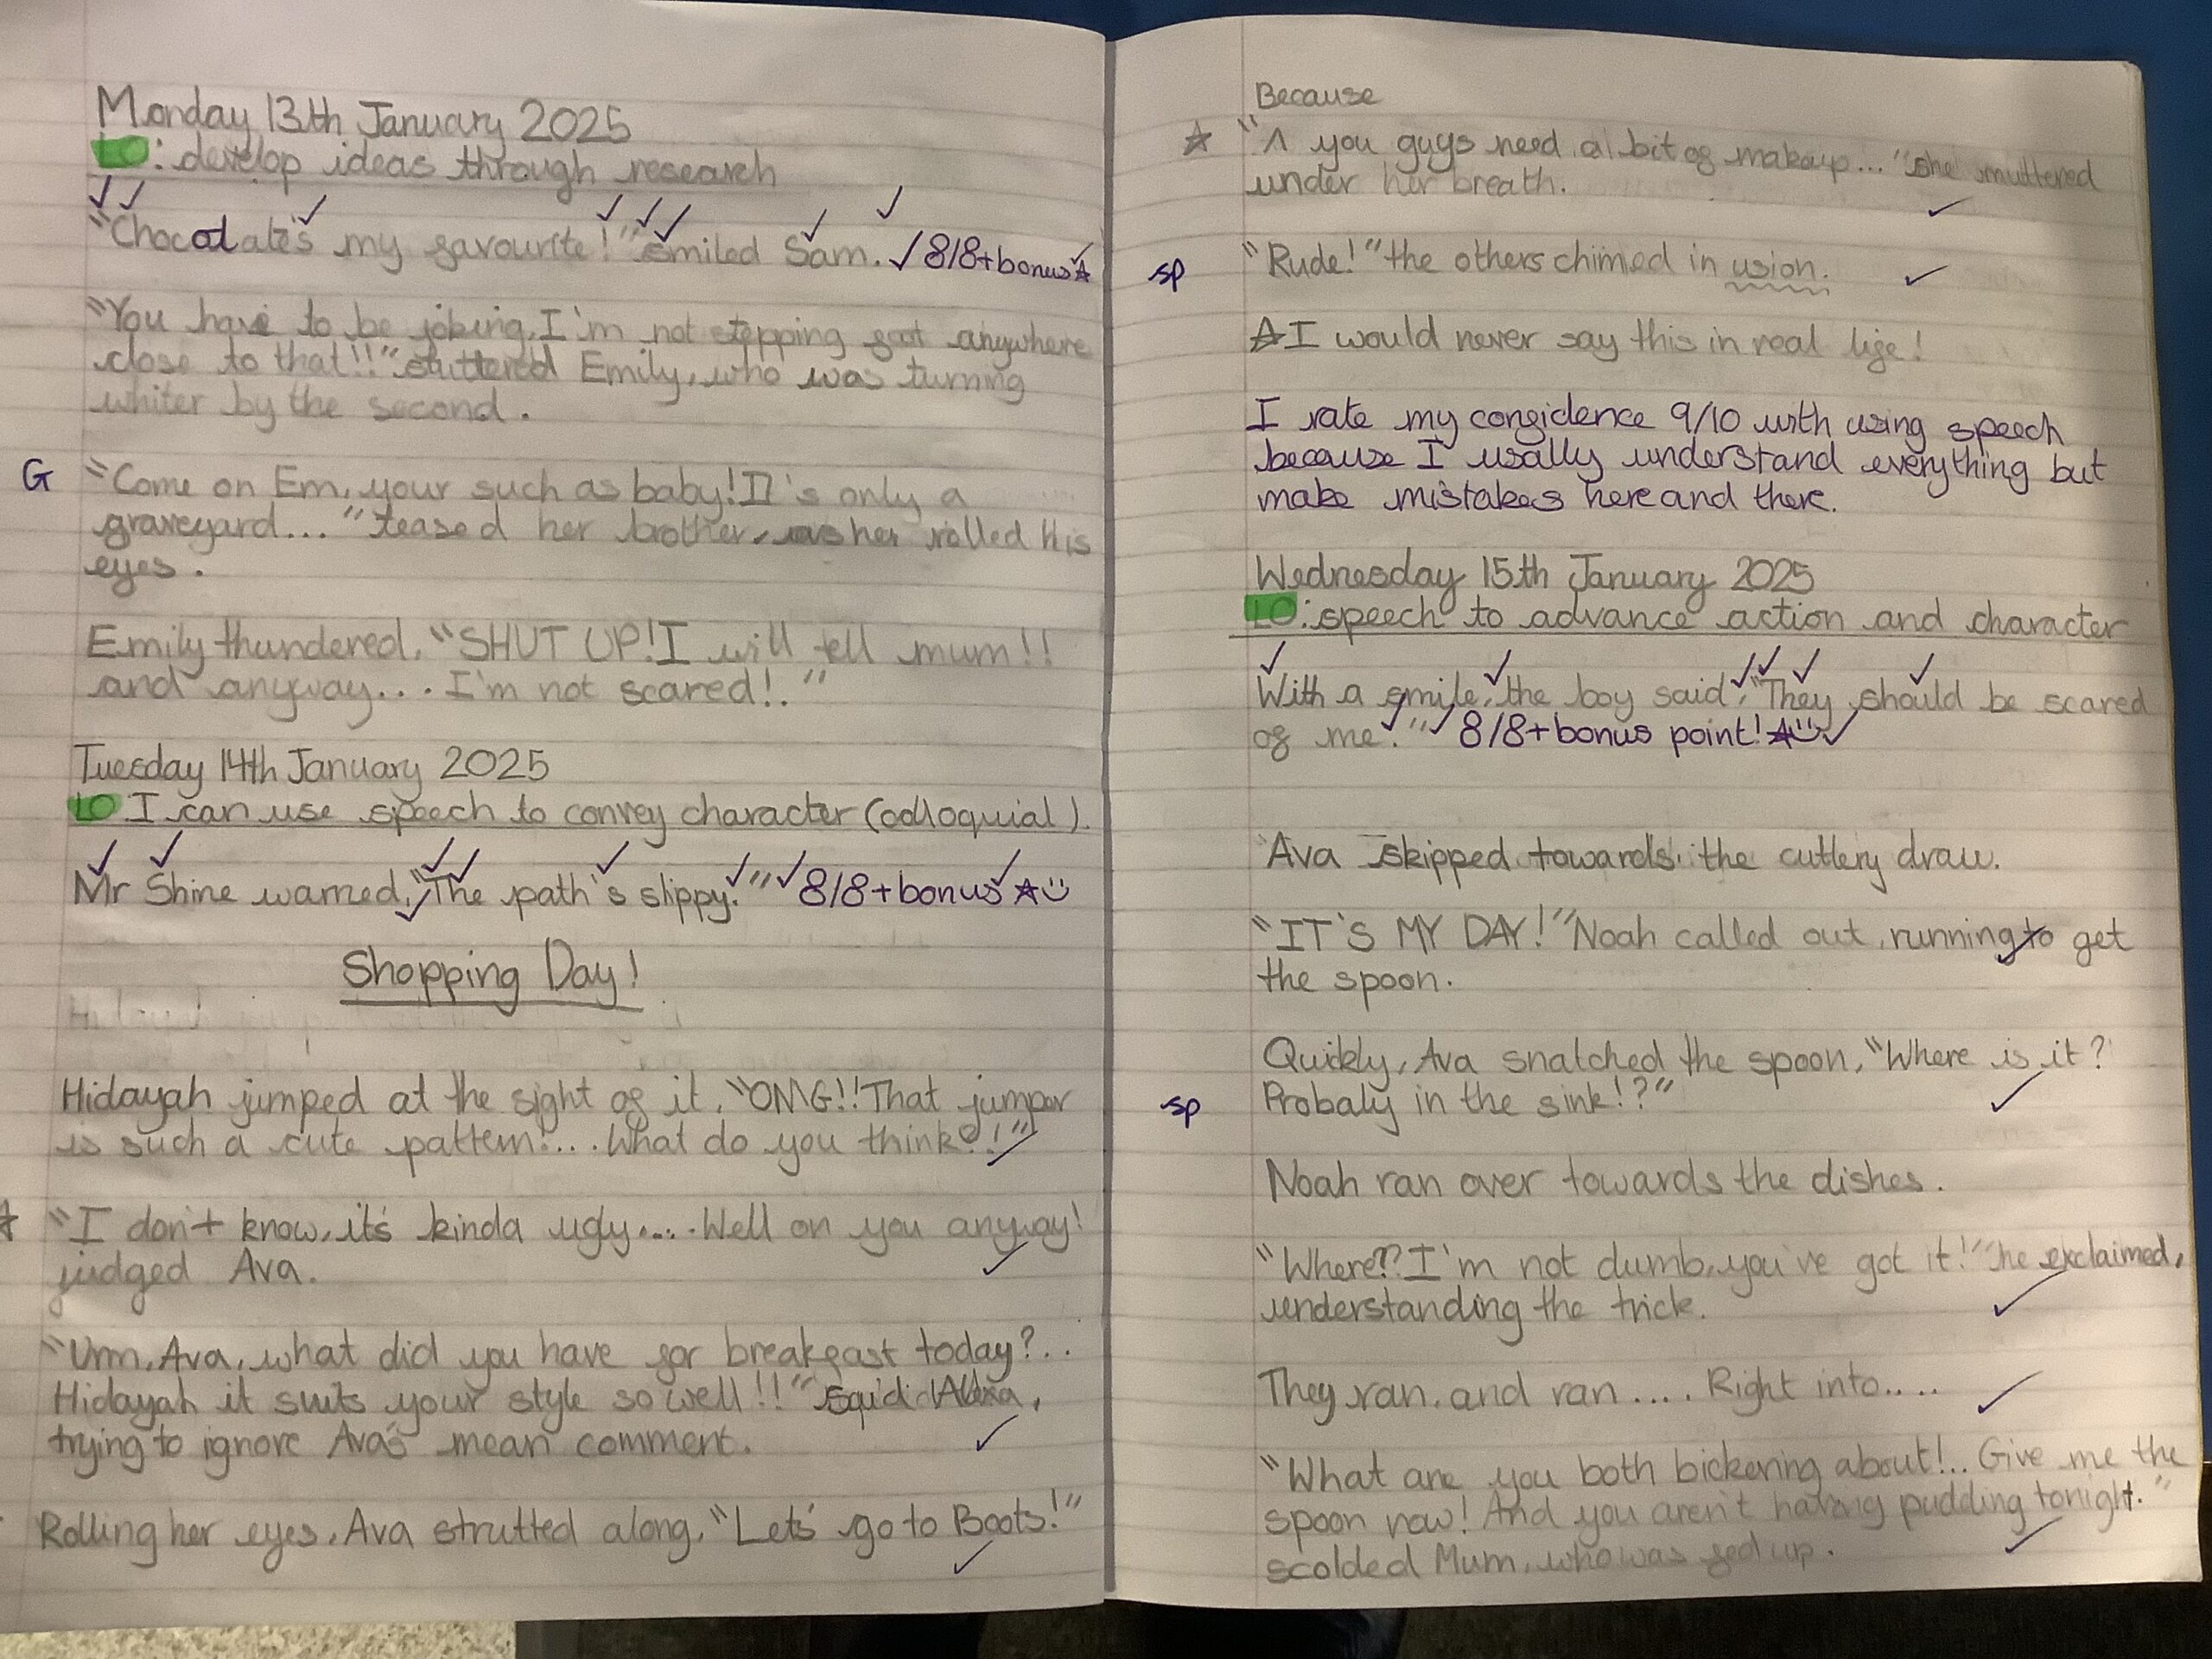 Monday 13th January 2025
LO: develop ideas through research
"Chocolate's my favourite!" smiled Sam. ✓ 8/8+bonus☆
"You have to be joking, I'm not stepping foot anywhere
close to that!!" stuttered Emily, who was turning
whiter by the second.
G "Come on Em, your such as baby! It's only a
graveyard..." teased her brother, as her rolled his
eyes.
Emily thundered, "SHUT UP! I will tell mum!!
and anyway.... I'm not scared!."
Tuesday 14th January 2025
LO I can use speech to convey character (colloquial).
Mr Shine warned, "The path's slippy." ✓ 8/8+bonus ☆☺
Shopping Day!
Hidayah jumped at the sight of it, "OMG!! That jumper
is such a cute pattern!.... What do you think?!"
☆ "I don't know, it's kinda ugly.... Well on you anyway!
judged Ava.
"Umm, Ava, what did you have for breakfast today?..
Hidayah it suits your style so well!!" said Alexa,
trying to ignore Ava's mean comment.
Rolling her eyes, Ava strutted along, "Let's go to Boots!"
Because
☆ "^ you guys need a bit of makeup..." she muttered
under her breath.
sp "Rude!" the others chimed in usion.
☆I would never say this in real life!
I rate my confidence 9/10 with using speech
because I usally understand everything but
make mistakes here and there.
Wednesday 15th January 2025
LO: speech to advance action and character
With a smile, the boy said, "They should be scared
of me." ✓ 8/8+bonus point! ☆☺✓
Ava skipped towards the cutlery draw.
"IT'S MY DAY!" Noah called out, running to get
the spoon.
Quickly, Ava snatched the spoon, "Where is it?
sp Probaly in the sink!?"
Noah ran over towards the dishes.
"Where?? I'm not dumb, you've got it!" he exclaimed,
understanding the trick.
They ran, and ran .... Right into....
"What are you both bickering about!.. Give me the
spoon now! And you aren't having pudding tonight."
scolded Mum, who was fed up.